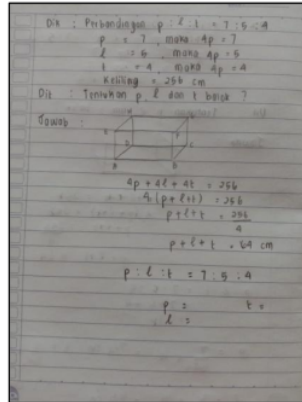 Dik : Perbandingan p : l : t = 7 : 5 : 4
p = 7, maka 4p = 7
l = 5, maka 4p = 5
t = 4 maka 4p = 4
Keliling = 256 cm
Dit : Tentukan p, l dan t balok ?
Jawab :
A B C
4p + 4l + 4t = 256
4 (p + l + t) = 256
p + l + t = 256
4
p + l + t = 64 cm
p : l : t = 7 : 5 : 4
p = t =
l =